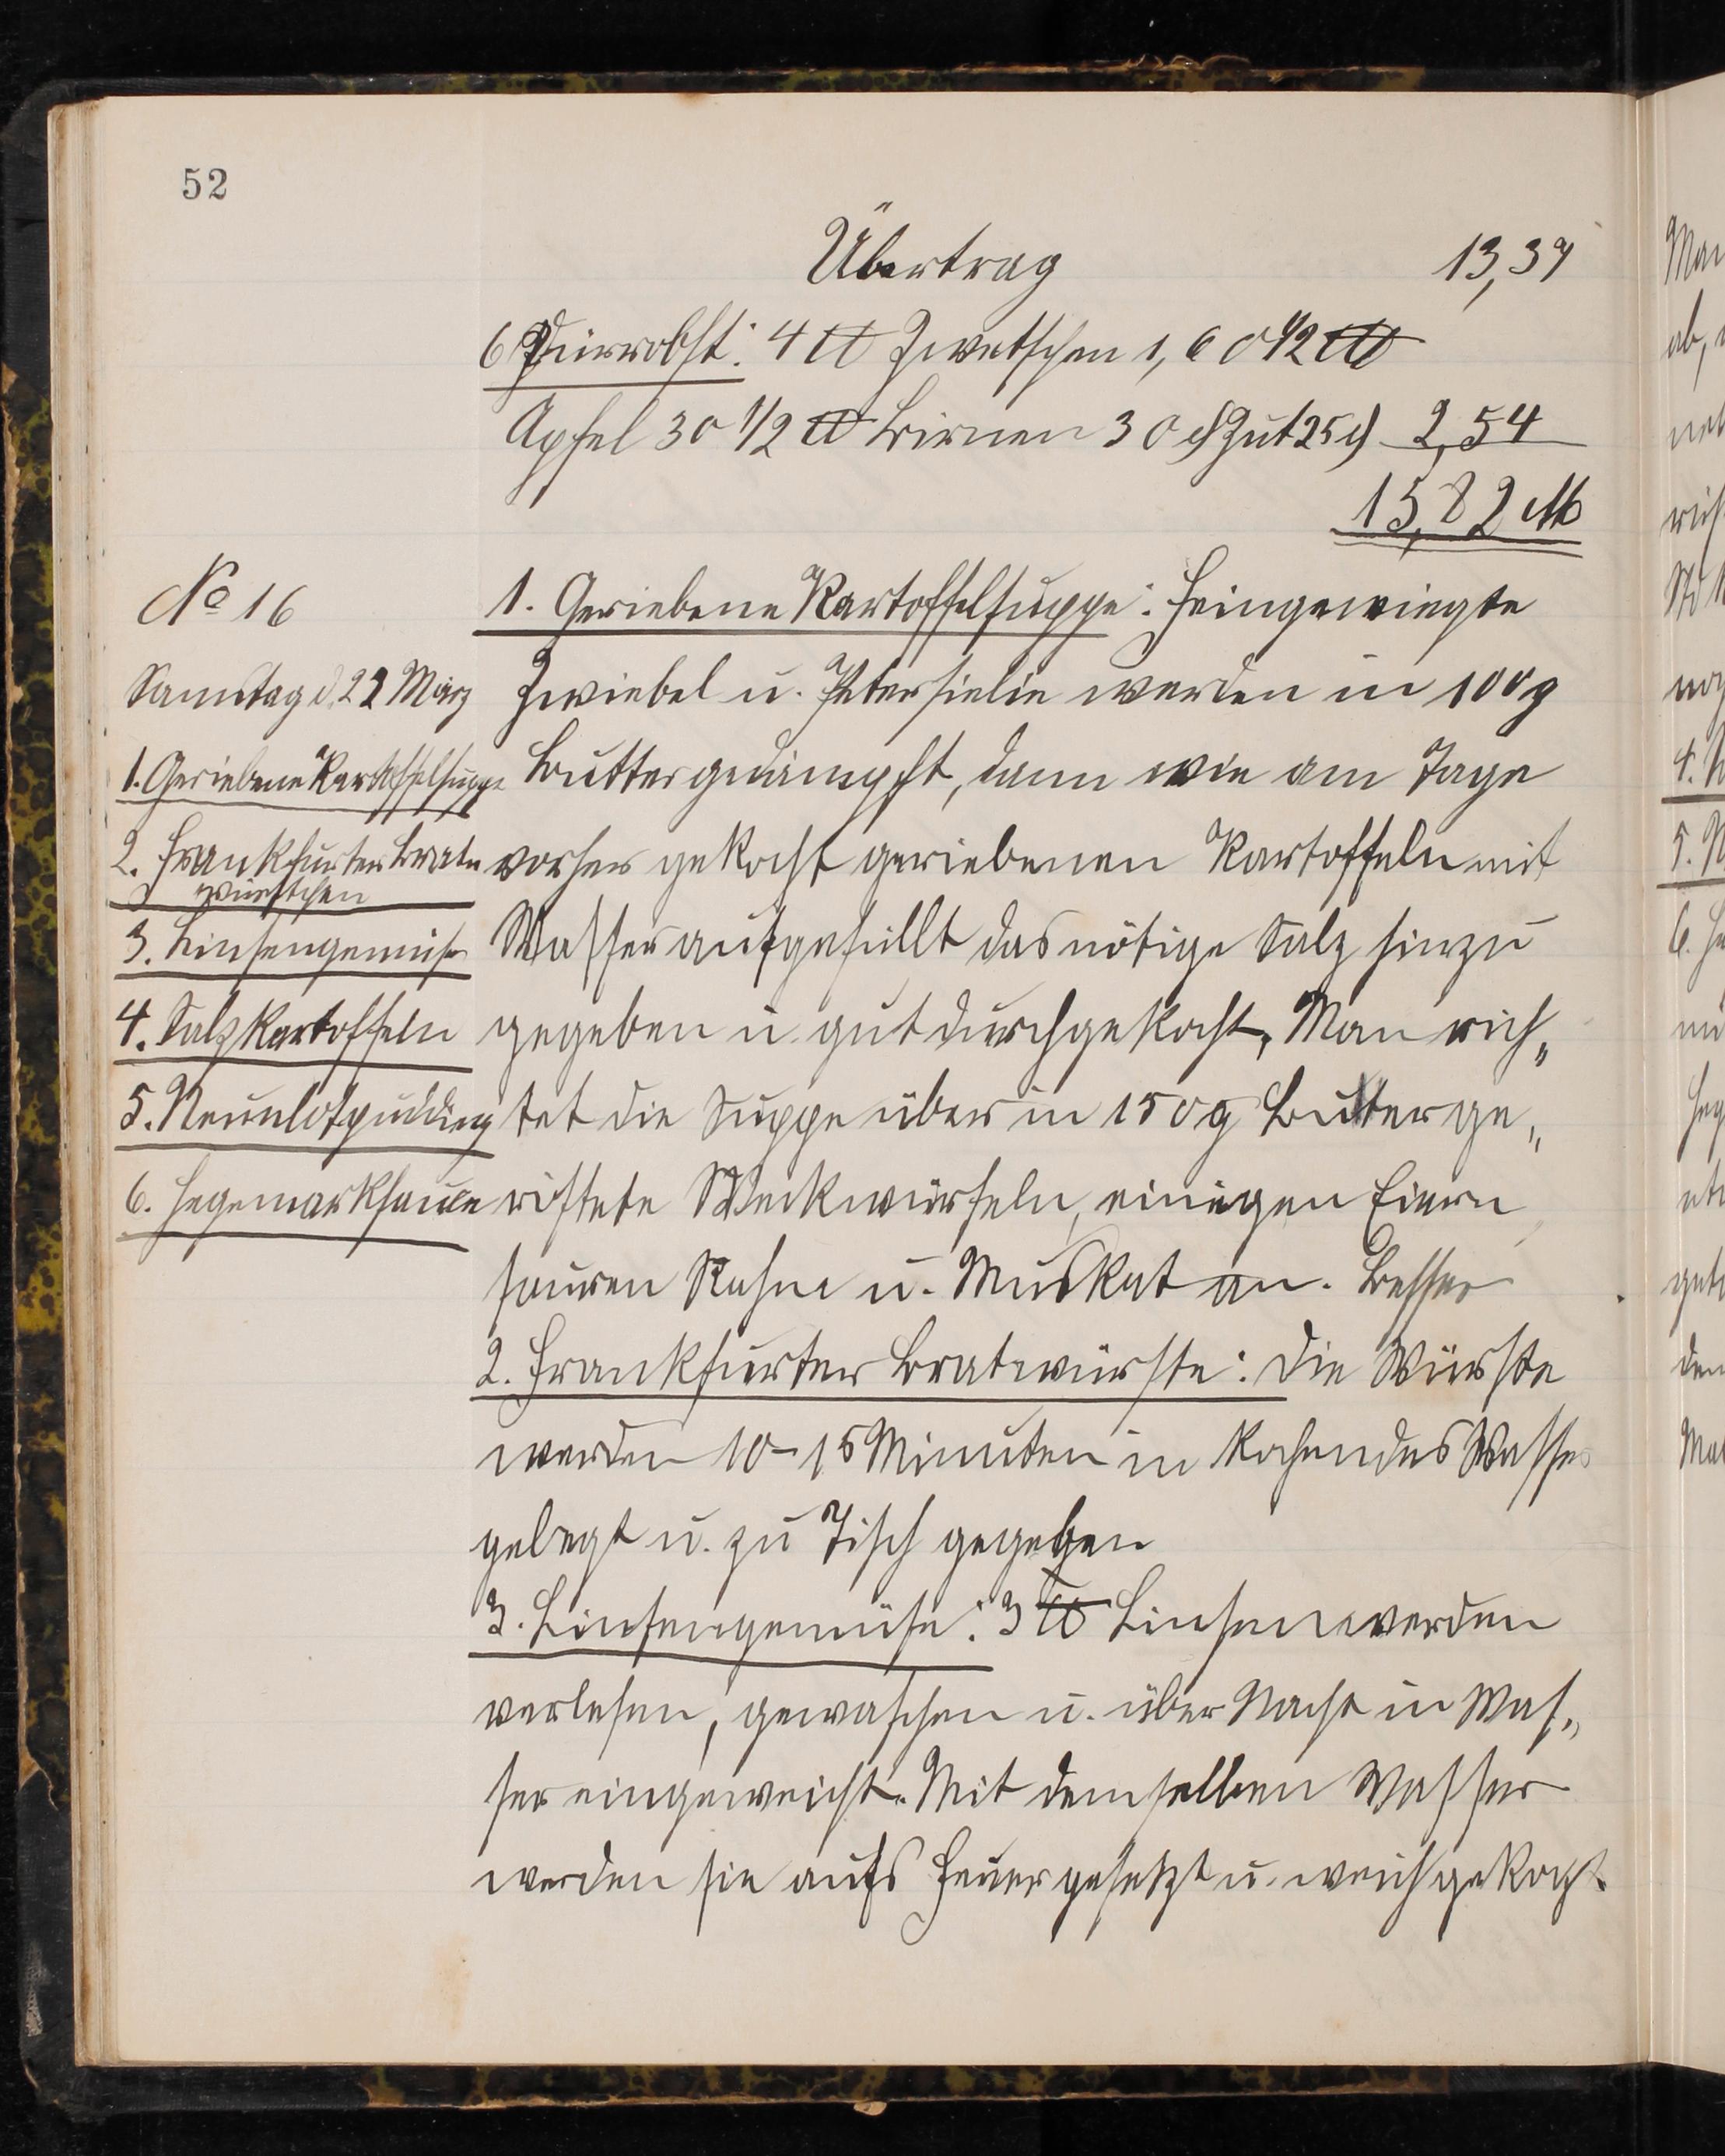 52
Übertrag 13,37
6 Dürrobst: 4 ℔ Zwetschen 1,60 1/2 ℔
Apfel 30 1/2 ℔ Birnen 30 ₰ Zut 25 ₰ 2,54
15,82 M
No 16
Samstag d. 22 März
1. Geriebene Kartoffelsuppe
2. Frankfurter Brat
würstchen
3. Linsengemüse
4. Salzkartoffeln
5. Neunlotpudding
6. Hegemarksauce
1. Geriebene Kartoffelsuppe: Feingewiegte
Zwiebel u. Petersielie werden in 100g
Butter gedämpft, dann wie am Tage
vorher gekocht geriebenen Kartoffeln mit
Wasser aufgefüllt das nötige Salz hinzu
gegeben u. gut durchgekocht, Man rich„
tet die Suppe über in 150g Butter ge„
röstete Weckwürfeln, einigen Eiern,
sauren Rahm u. Muskat an. Besser
2. Frankfurter Bratwürste: Die Würste
werden 10-15 Minuten in kochendes Wasser
gelegt u. zu Tisch gegeben
3. Linsengemüse: 3 ℔ Linsen werden
verlesen, gewaschen u. über Nacht in Was„
ser eingeweicht. Mit demselben Wasser
werden sie aufs Feuer gesetzt u. weich gekocht.